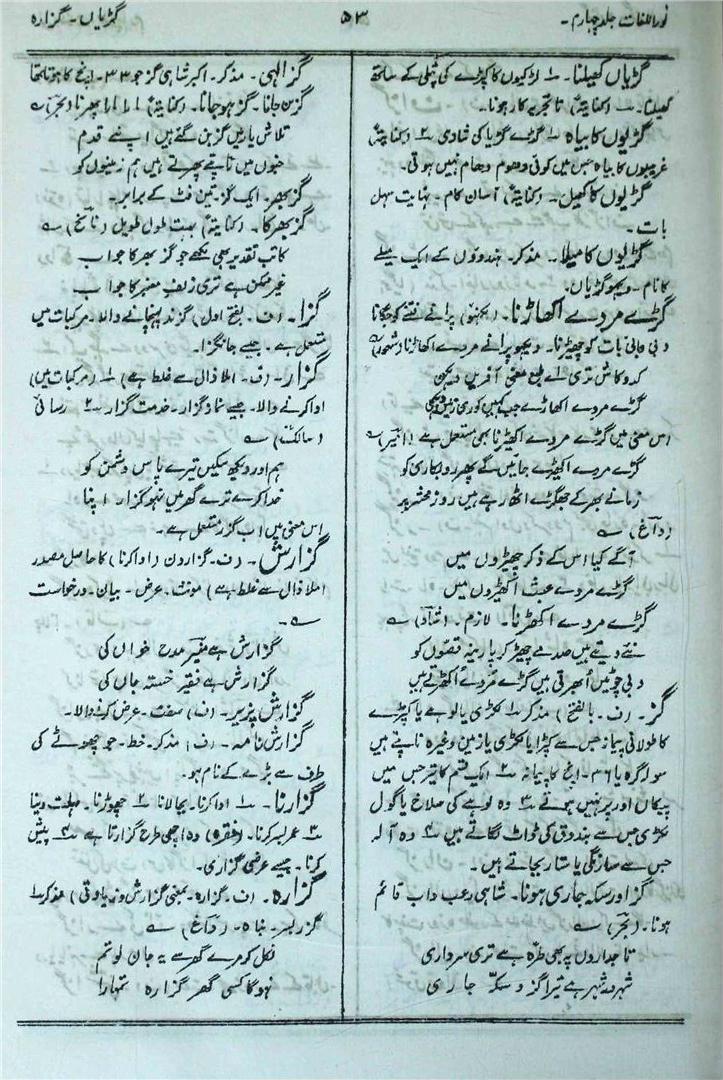 نوراللغات جلد چہارم۔
۵۳
گڑیاں۔ گزارہ
گڑیاں کھیلنا۔ ۱ لڑکیوں کا کپڑے کی پتلی کے ساتھ
کھیلنا۔ ۲ (کنایۃً) ناتجربے کار ہونا۔
گڑیوں کا بیاہ ۱ گڈے گڑیا کی شادی ۲ (کنایۃً)
غریبوں کا بیاہ جس میں کوئی دھوم دھام نہیں ہوتی۔
گڑیوں کا کھیل۔ (کنایۃً) آسان کام۔ نہایت سہل
بات۔
گڑیوں کا میلا۔ مذکر۔ ہندوؤں کے ایک میلے
کا نام۔ دیکھو گڑیاں۔
گڑے مردے اکھاڑنا۔ (لکھنؤ) پرانے فتنے کو جگانا
دبی دبائی بات کو چھیڑنا۔ دیکھو پرانے مردے اکھاڑنا (شعور) ؎
کدوکاش تری اے طبع معنی آفریں دیکھی
گڑے مردے اکھاڑے جب کہیں کوری زمیں دیکھی
اس معنی میں گڑے مردے اکھیڑنا بھی مستعمل ہے (اسیر) ؎
گڑے مردے اکھیڑے جائیں گے پھر روبکاری کو
زمانے بھر کے جھگڑے اٹھ رہے ہیں روز محشر پر
(داغ) ؎
آگے کیا اس کے ذکر چھیڑوں میں
گڑے مردے عبث اکھیڑوں میں
گڑے مردے اکھڑنا۔ لازم۔ (شاد) ؎
نئے دیتے ہیں صدمے چھیڑ کر پارینہ قصوں کو
دبی چوٹیں اُبھرتی ہیں گڑے مُردے اُکھڑتے ہیں
گز۔ (ف۔ بالفتح) مذکر ۱ لکڑی یا لوہے یا کپڑے
کا طولانی پیمانہ جس سے کپڑا یا لکڑی یا زمین وغیرہ ناپتے ہیں
سولہ گرہ یا ۳۶۔ انچ کا پیمانہ ۲ ایک قسم کا تیر جس میں
پیکاں اور پر نہیں ہوتے ۳ وہ لوہے کی سلاخ یا گول
لکڑی جس سے بندوق کی ڈاٹ لگاتے ہیں ۴ وہ آلہ
جس سے سارنگی یا ستار بجاتے ہیں۔
گز اور سکہ جاری ہونا۔ شاہی رعب داب قائم
ہونا۔ (بحر) ؎
تاجداروں پہ بھی طرّہ ہے تری سرداری
شہر در شہر ہے تیرا گز و سکہ جاری
گز الٰہی۔ مذکر۔ اکبر شاہی گز جو ۳۳۔ انچ کا ہوتا تھا
گز بن جانا۔ گز ہو جانا۔ (کنایۃً) مارا مارا پھرنا (بحر) ؎
تلاش یار میں گز بن گئے ہیں اپنے قدم
جنوں میں ناپتے پھرتے ہیں ہم زمینوں کو
گز بھر۔ ایک گز۔ تین فٹ کے برابر۔
گز بھر کا۔ (کنایۃً) بہت طول طویل (ناسخ) ؎
کاتب تقدیر بھی لکھے جو گز بھر کا جواب
غیر ممکن ہے تری زلف معنبر کا جواب
گزا۔ (ف۔ بفتح اول) گزند پہنچانے والا۔ مرکبات میں
مستعمل ہے۔ جیسے جانگزا۔
گزار۔ (ف۔ املا ذال سے غلط ہے) ۱ (مرکبات میں)
ادا کرنے والا۔ جیسے نماز گزار۔ خدمت گزار ۲ رسائی
(سالک) ؎
ہم اور دیکھ سکیں تیرے پاس دشمن کو
خدا کرے ترے گھر میں نہ ہو گزار اپنا
اس معنی میں اب گزر مستعمل ہے۔
گزارش۔ (ف۔ گزاردن (ادا کرنا) کا حاصل مصدر
املا ذال سے غلط ہے) مونث۔ عرض۔ بیان۔ درخواست
؎
گزارش ہے مدح خواں کی
گزارش ہے فقیر خستہ جاں کی
گزارش پذیر۔ (ف) صفت۔ عرض کرنے والا۔
گزارش نامہ۔ (ف) مذکر۔ خط۔ جو چھوٹے کی
طرف سے بڑے کے نام ہو۔
گزارنا۔ ۱ ادا کرنا۔ بجا لانا ۲ چھوڑنا۔ مہلت دینا
۳ عمر بسر کرنا۔ (فقرہ) وہ اچھی طرح گزارتا ہے ۴ پیش
کرنا۔ جیسے عرضی گزاری۔
گزارہ۔ (ف۔ گزارہ۔ بمعنی گزارش و زیادتی) مذکر ۱
گزر بسر۔ نباہ۔ (داغ) ؎
نکل کر مرے گھر سے یہ جان لو تم
نہ ہوگا کسی گھر گزارہ تمہارا